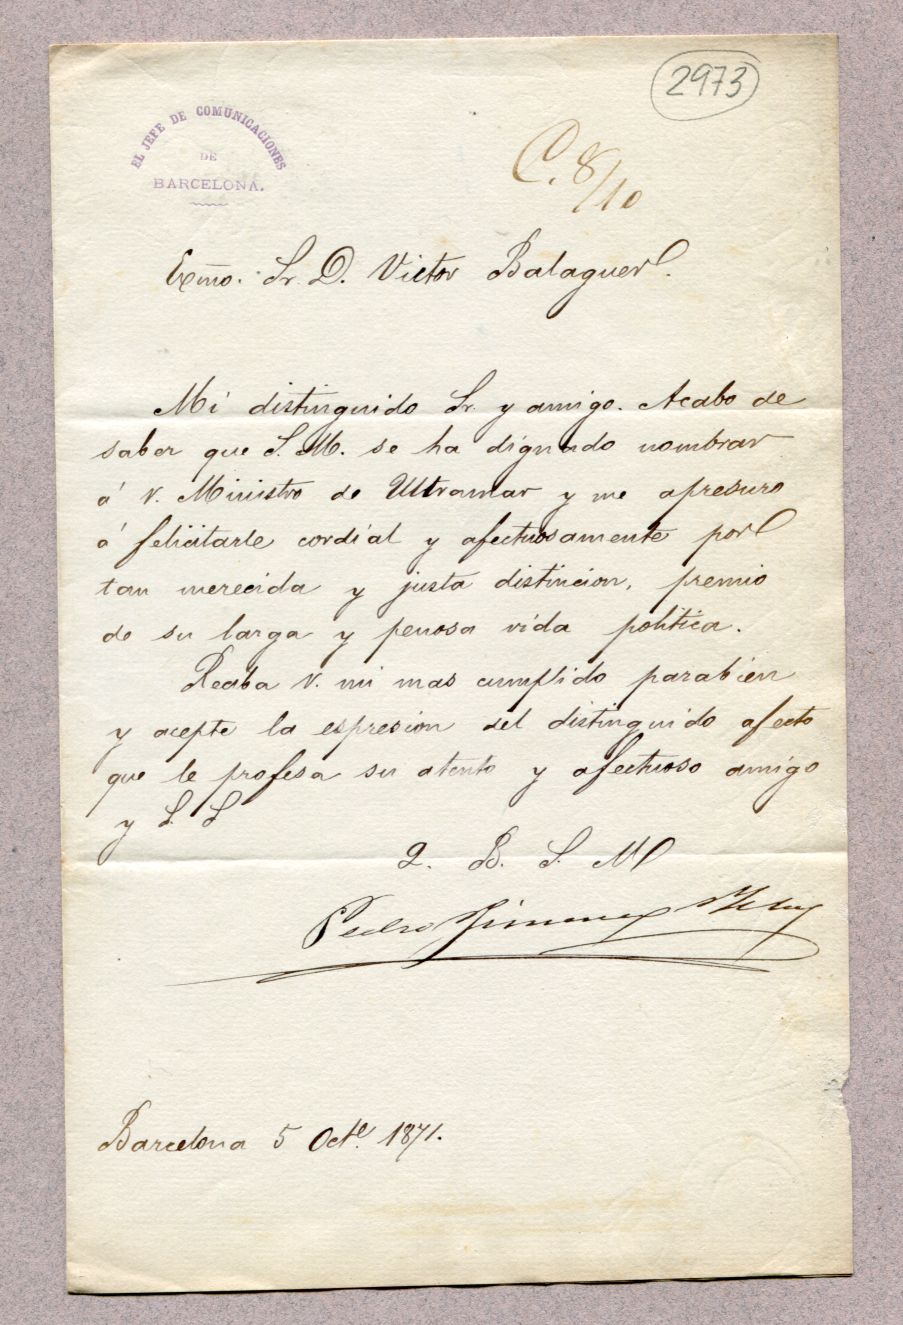 2973
EL JEFE DE COMUNICACIONES
DE
BARCELONA.
C. 8/10
Exmo. Sr. D. Victor Balaguer.
Mi distinguido Sr. y amigo. Acabo de
saber que S. M. se ha dignado nombrar
á V. Ministro de Ultramar y me apresuro
á felicitarle cordial y afectuosamente por
tan merecida y justa distincion, premio
de su larga y penosa vida politica.
Reciba V. mi mas cumplido parabien
y acepte la espresion del distinguido afecto
que le profesa su atento y afectuoso amigo
y S. S
Q. B. S. M
Pedro Jimenez
Barcelona 5 Octe. 1871.